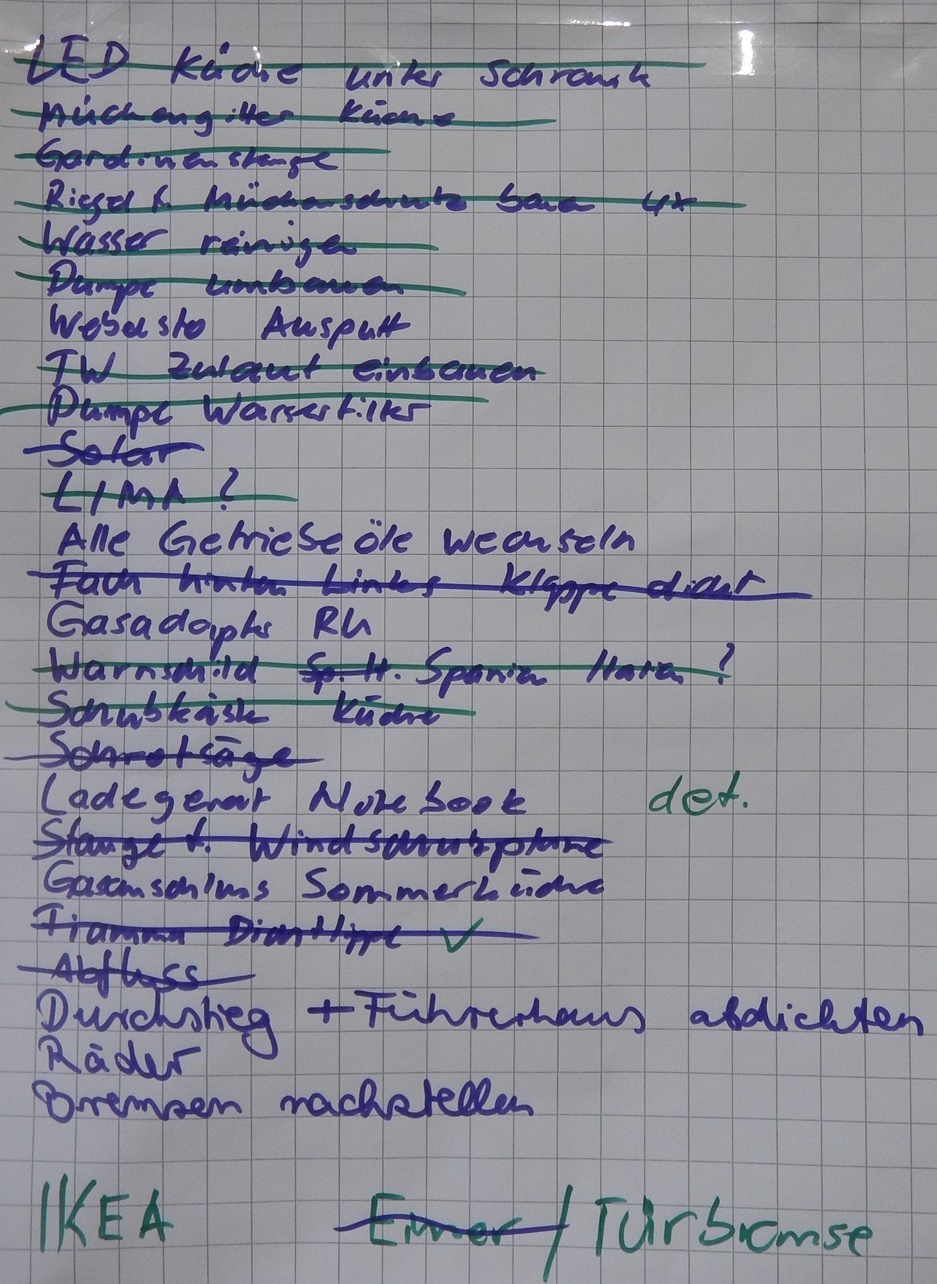 LED Küche unter Schrank
Mückengitter Küche
Gardinenstange
Riegel f. Mückenschutz bauen 4x
Wasser reinigen
Pumpe umbauen
Webasto Auspuff
TW Zulauf einbauen
Pumpe Wasserfilter
Solar
LIMA ?
Alle Getriebeöle wechseln
Fach hinten Links Klappe dicht
Gasadapter RU
Warnschild Sp. H. Spanien Italien ?
Schubkäste Küche
Schrotsäge
Ladegerät Notebook def.
Stange f. Windschutzplane
Gasanschluss Sommerküche
Fiamma Dichtlippe ✓
Abfluss
Durchstieg + Führerhaus abdichten
Räder
Bremsen nachstellen
IKEA Eimer / Türbremse